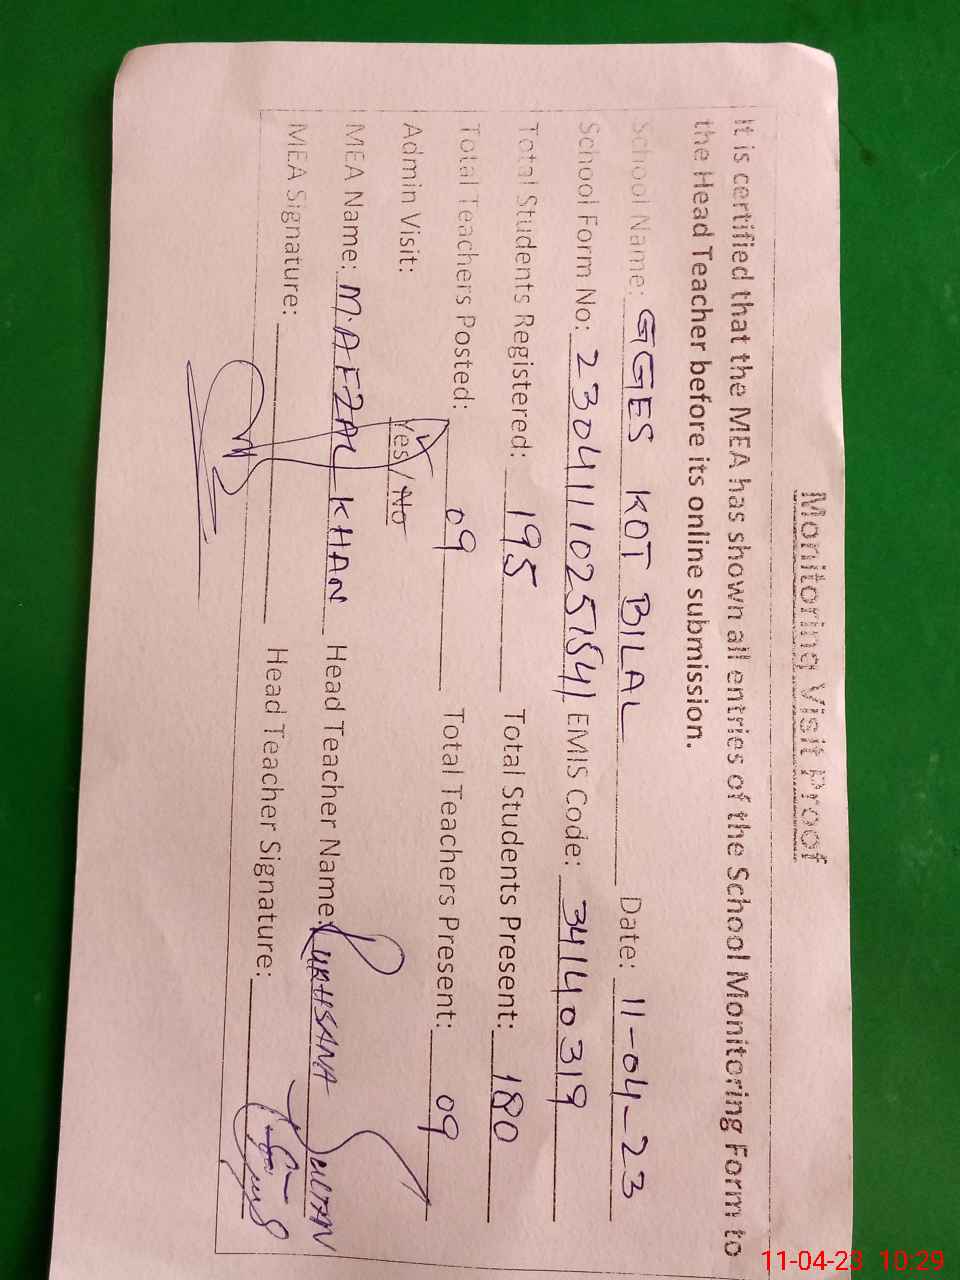 Monitoring Visit Proof
It is certified that the MEA has shown all entries of the School Monitoring Form to
the Head Teacher before its online submission.
School Name: GGES KOT BILAL Date: 11-04-23
School Form No: 23041110251541 EMIS Code: 34140319
Total Students Registered: 195 Total Students Present: 180
Total Teachers Posted: 09 Total Teachers Present: 09
Admin Visit: Yes / No
MEA Name: M.AFZAL KHAN Head Teacher Name: RUKHSANA SULTAN
MEA Signature: Head Teacher Signature:
11-04-23 10:29